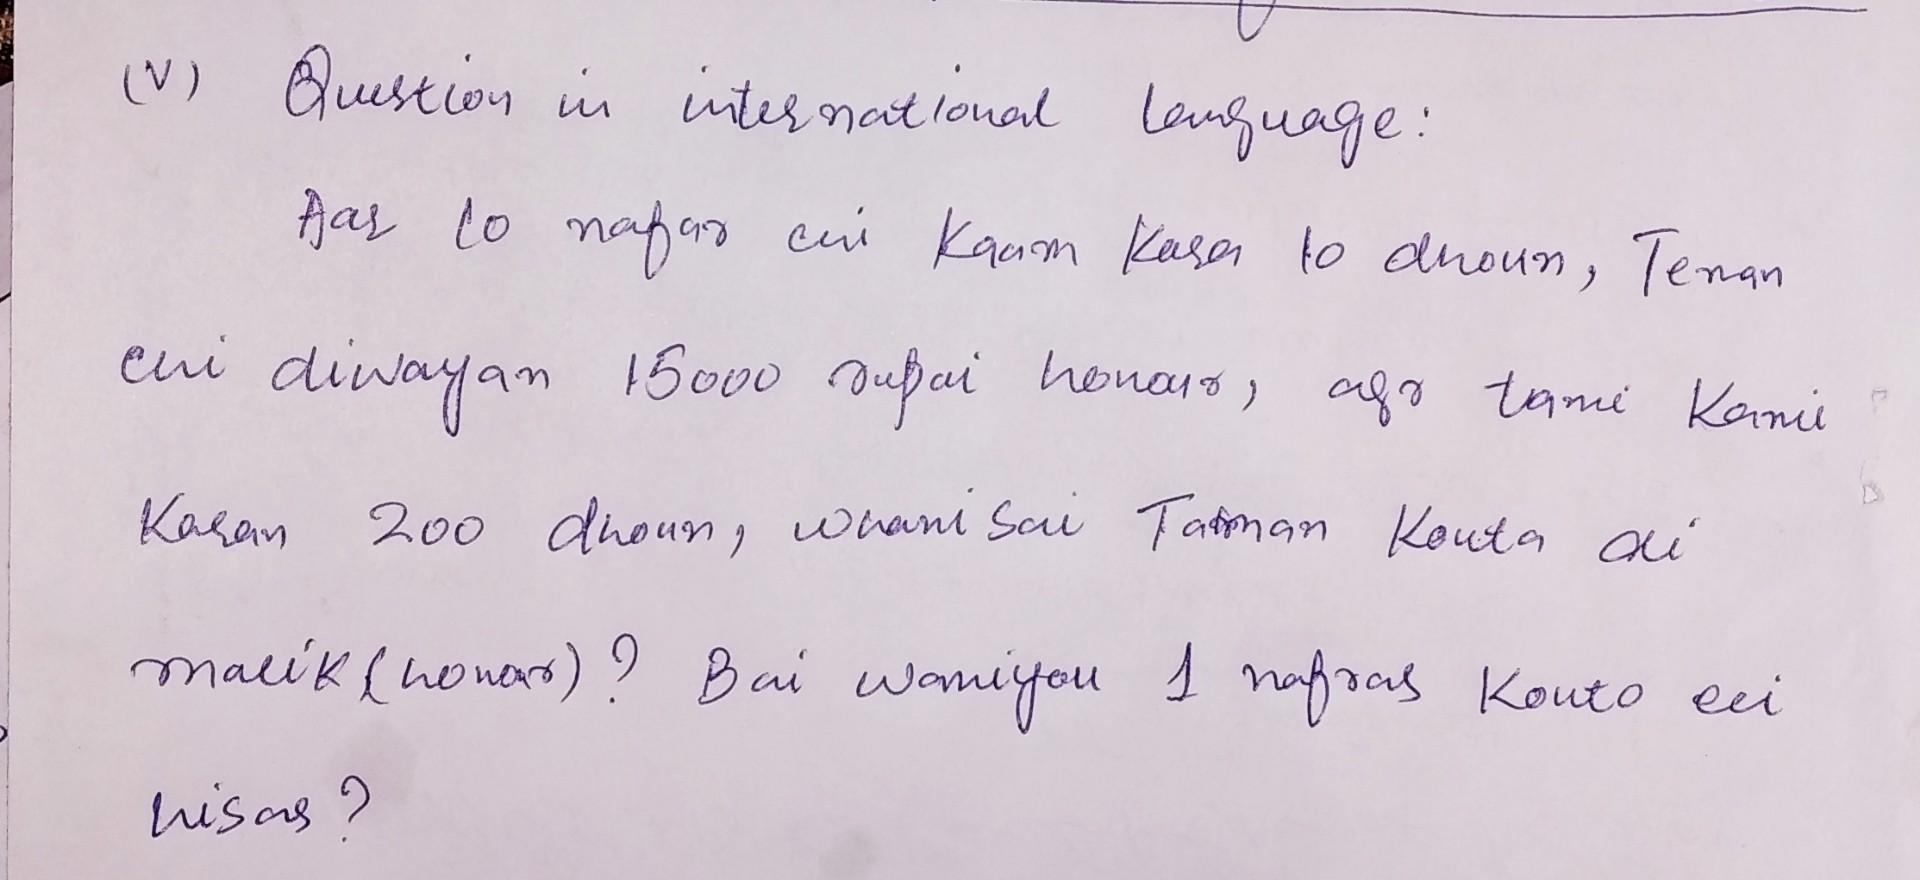 (V) Question in international language:
Aar 10 nafar cui Kaam Kara 10 dhoun, Tenan
cui diwayan 15000 rupai honour, agr tami Kami
Karan 200 dhoun, whani sai Taman Kouta di
malik (honar)? Bai wamiyou 1 nafras Kouto cei
hisas?